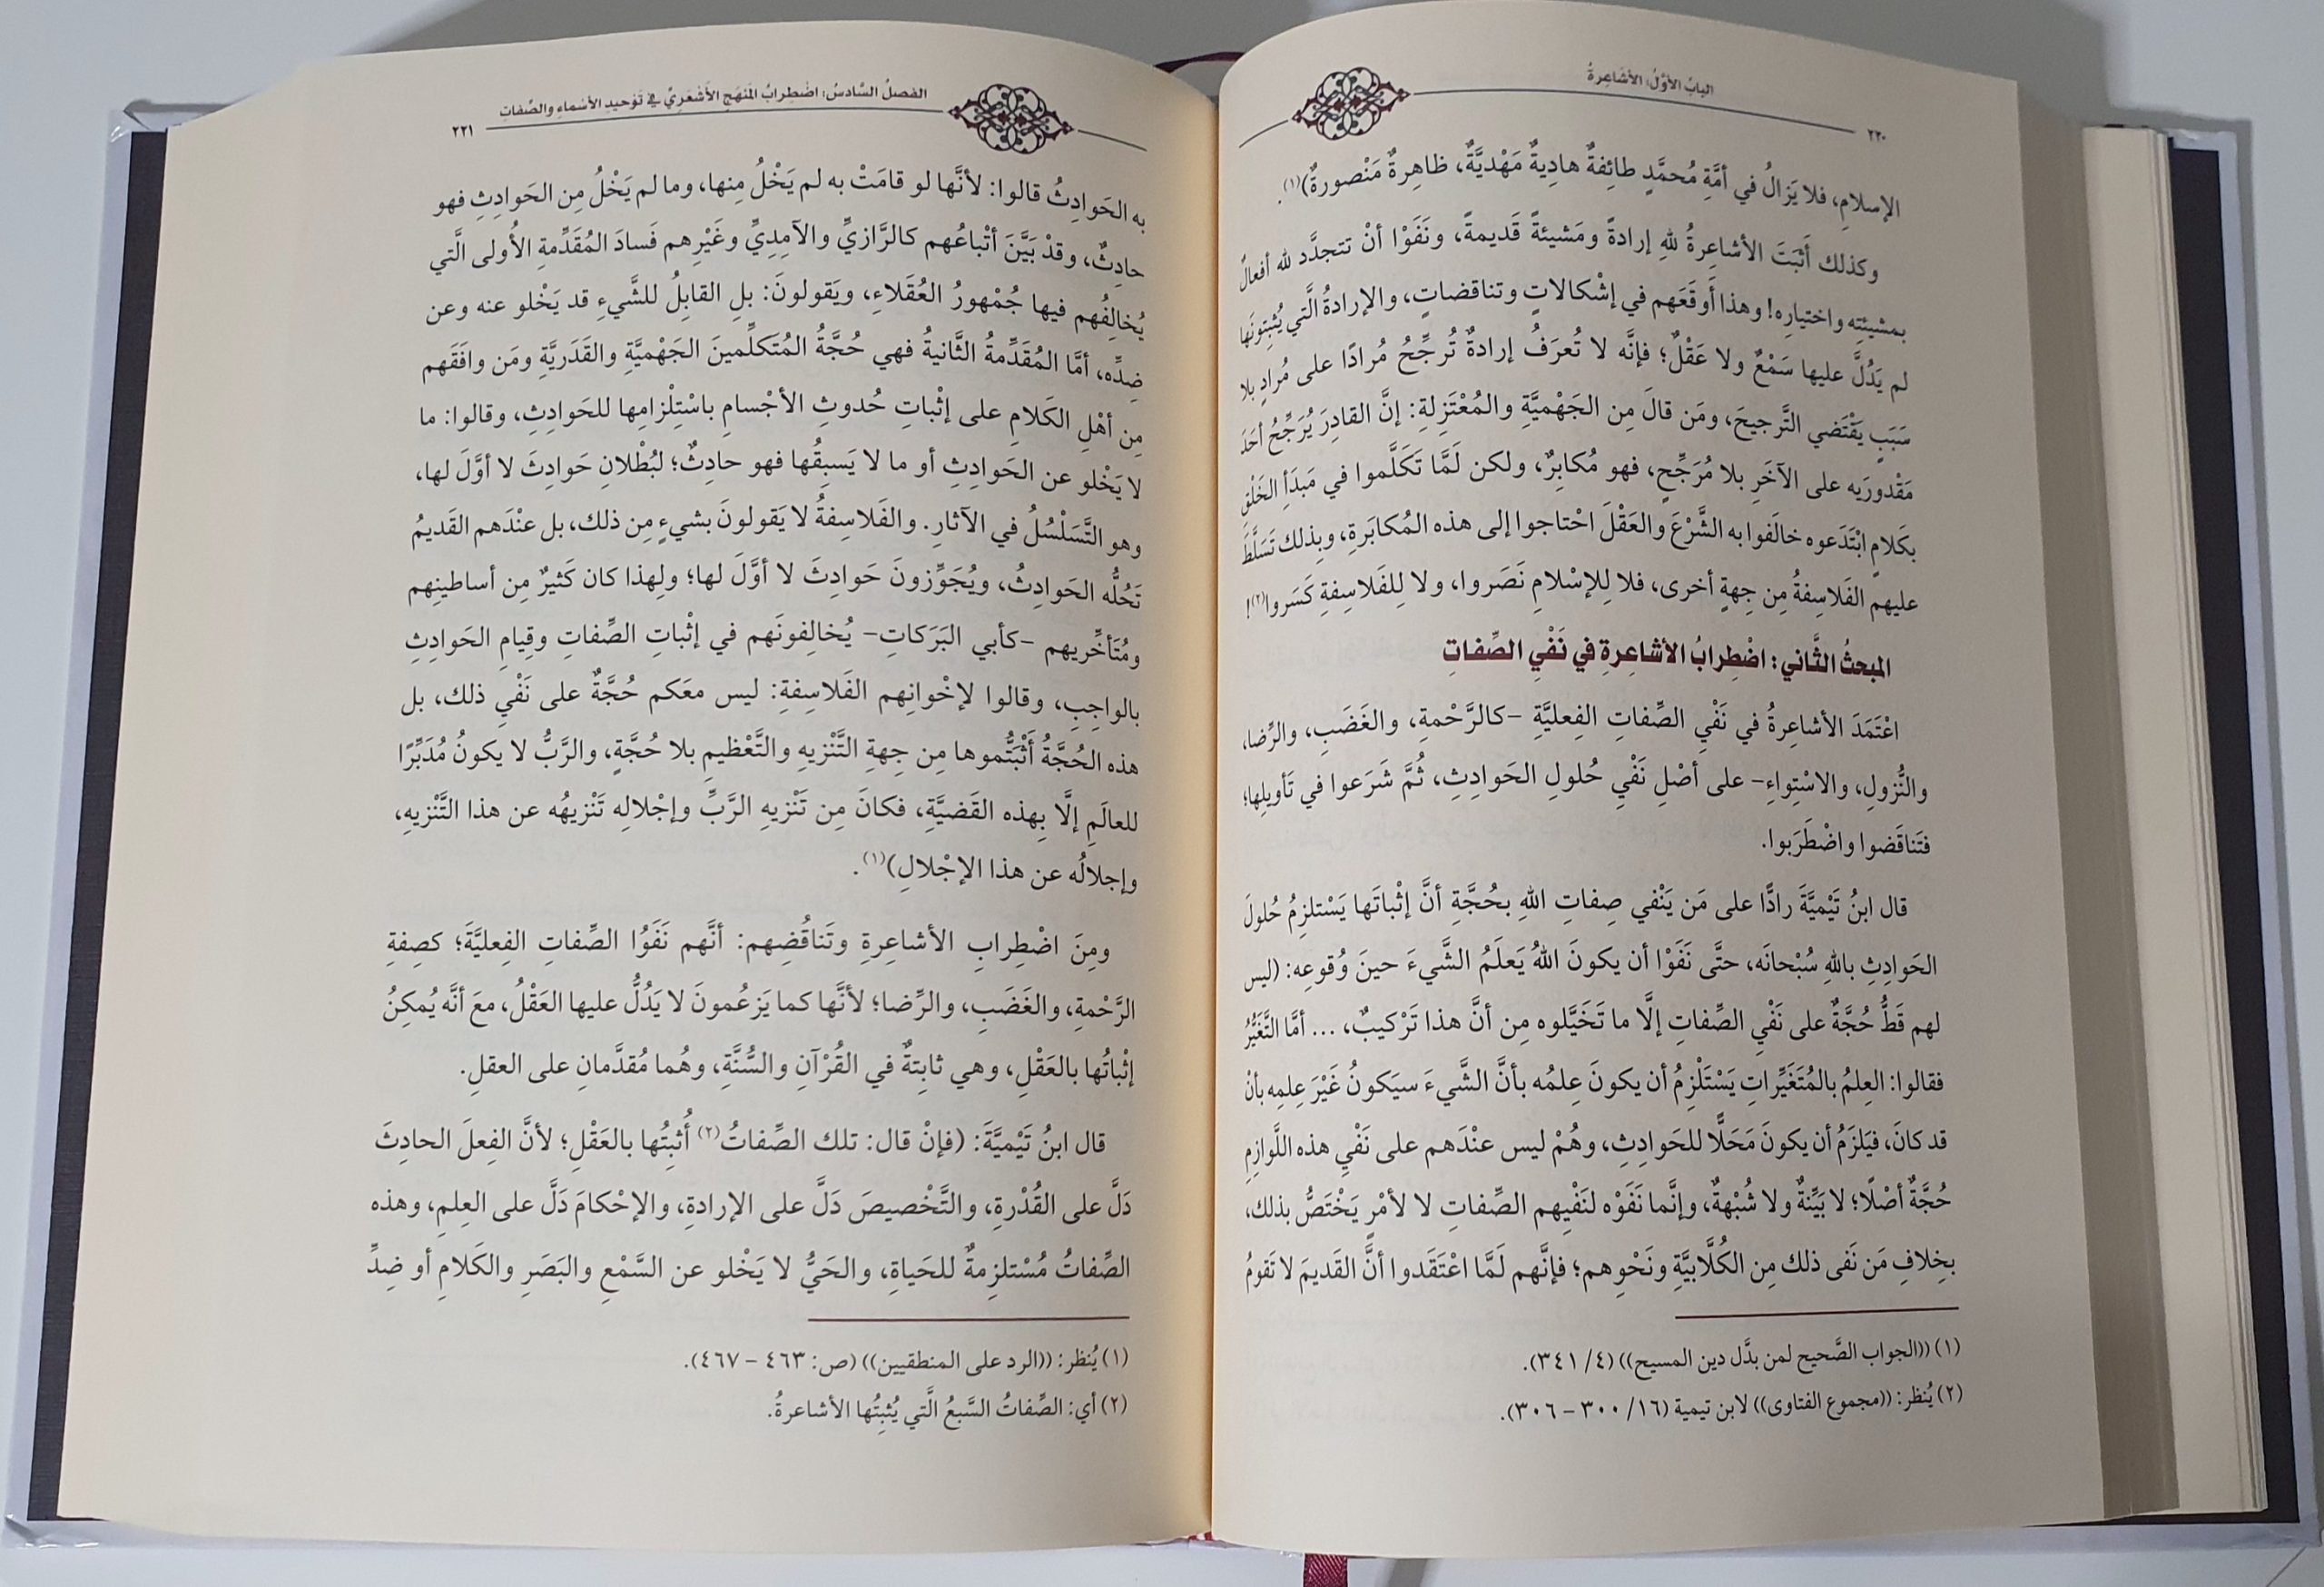 الباب الأوَّلُ: الأشَاعِرةُ
٢٢٠
الإسلامِ، فلا يَزالُ في أمَّةِ مُحمَّدٍ طائِفةٌ هادِيةٌ مَهْديَّةٌ، ظاهِرةٌ مَنْصورةٌ)(١).
وكذلك أثبَتَ الأشاعِرةُ للهِ إرادةً ومَشيئةً قَديمةً، ونَفَوْا أنْ تتجدَّد لله أفعالٌ
بمشيئتِه واختيارِه! وهذا أَوقَعَهم في إشْكالاتٍ وتناقضاتٍ، والإرادةُ الَّتي يُثبِتونَها
لم يَدُلَّ عليها سَمْعٌ ولا عَقْلٌ؛ فإنَّه لا تُعرَفُ إرادةٌ تُرجِّحُ مُرادًا على مُرادٍ بلا
سَبَبٍ يَقْتَضي التَّرجيحَ، ومَن قالَ مِن الجَهْميَّةِ والمُعْتَزِلةِ: إنَّ القادِرَ يُرَجِّحُ أحَدَ
مَقْدورَيه على الآخَرِ بلا مُرَجِّحٍ، فهو مُكابِرٌ، ولكن لَمَّا تَكَلَّموا في مَبدَأِ الخَلْقِ
بكَلامٍ ابْتَدَعوه خالَفوا به الشَّرْعَ والعَقْلَ احْتاجوا إلى هذه المُكابَرةِ، وبِذلك تَسَلَّطَ
عليهم الفَلاسِفةُ مِن جِهةٍ أخرى، فلا لِلإسْلامِ نَصَروا، ولا لِلفَلاسِفةِ كَسَروا(٢)!
المبحثُ الثَّاني: اضْطِرابُ الأشاعِرةِ في نَفْيِ الصِّفاتِ
اعْتَمَدَ الأشاعِرةُ في نَفْيِ الصِّفاتِ الفِعليَّةِ -كالرَّحْمةِ، والغَضَبِ، والرِّضا،
والنُّزولِ، والاسْتِواءِ- على أصْلِ نَفْيِ حُلولِ الحَوادِثِ، ثُمَّ شَرَعوا في تَأويلِها؛
فتَناقَضوا واضْطَرَبوا.
قال ابنُ تَيْميَّةَ رادًّا على مَن يَنْفي صِفاتِ اللهِ بحُجَّةِ أنَّ إثْباتَها يَسْتلزِمُ حُلولَ
الحَوادِثِ باللهِ سُبْحانَه، حتَّى نَفَوْا أن يكونَ اللهُ يَعلَمُ الشَّيءَ حينَ وُقوعِه: (ليس
لهم قَطُّ حُجَّةٌ على نَفْيِ الصِّفاتِ إلَّا ما تَخَيَّلوه مِن أنَّ هذا تَرْكيبٌ، ... أمَّا التَّغَيُّرُ
فقالوا: العِلمُ بالمُتَغَيِّراتِ يَسْتَلْزِمُ أن يكونَ عِلمُه بأنَّ الشَّيءَ سيَكونُ غَيْرَ عِلمِه بأنْ
قد كانَ، فيَلزَمُ أن يكونَ مَحَلًّا للحَوادِثِ، وهُمْ ليس عنْدَهم على نَفْيِ هذه اللَّوازِمِ
حُجَّةٌ أصْلًا؛ لا بَيِّنةٌ ولا شُبْهةٌ، وإنَّما نَفَوْه لنَفْيِهم الصِّفاتِ لا لأمْرٍ يَخْتَصُّ بذلك،
بخِلافِ مَن نَفى ذلك مِن الكُلَّابيَّةِ ونَحْوِهم؛ فإنَّهم لَمَّا اعْتَقَدوا أنَّ القَديمَ لا تَقومُ
(١) ((الجواب الصَّحيح لمن بدَّل دين المسيح)) (٤/ ٣٤١).
(٢) يُنظر: ((مجموع الفتاوى)) لابن تيمية (١٦/ ٣٠٠ - ٣٠٦).
الفصلُ السَّادسُ: اضْطِرابُ المَنهَجِ الأَشْعَريِّ في تَوْحيدِ الأسْماءِ والصِّفاتِ
٢٢١
به الحَوادِثُ قالوا: لأنَّها لو قامَتْ به لم يَخْلُ مِنها، وما لم يَخْلُ مِن الحَوادِثِ فهو
حادِثٌ، وقدْ بَيَّنَ أتْباعُهم كالرَّازيِّ والآمِديِّ وغَيْرِهم فَسادَ المُقَدِّمةِ الأُولى الَّتي
يُخالِفُهم فيها جُمْهورُ العُقَلاءِ، ويَقولونَ: بلِ القابِلُ للشَّيءِ قد يَخْلو عنه وعن
ضِدِّه، أمَّا المُقَدِّمةُ الثَّانيةُ فهي حُجَّةُ المُتَكلِّمينَ الجَهْميَّةِ والقَدَريَّةِ ومَن وافَقَهم
مِن أهْلِ الكَلامِ على إثْباتِ حُدوثِ الأجْسامِ باسْتِلْزامِها للحَوادِثِ، وقالوا: ما
لا يَخْلو عن الحَوادِثِ أو ما لا يَسبِقُها فهو حادِثٌ؛ لبُطْلانِ حَوادِثَ لا أوَّلَ لها،
وهو التَّسَلْسُلُ في الآثارِ. والفَلاسِفةُ لا يَقولونَ بشيءٍ مِن ذلك، بل عنْدَهم القَديمُ
تَحُلُّه الحَوادِثُ، ويُجَوِّزونَ حَوادِثَ لا أوَّلَ لها؛ ولِهذا كان كَثيرٌ مِن أساطينِهم
ومُتَأخِّريهم -كأبي البَرَكاتِ- يُخالِفونَهم في إثْباتِ الصِّفاتِ وقِيامِ الحَوادِثِ
بالواجِبِ، وقالوا لإخْوانِهم الفَلاسِفةِ: ليس معَكم حُجَّةٌ على نَفْيِ ذلك، بل
هذه الحُجَّةُ أَثْبَتُّموها مِن جِهةِ التَّنْزيهِ والتَّعْظيمِ بلا حُجَّةٍ، والرَّبُّ لا يكونُ مُدَبِّرًا
للعالَمِ إلَّا بِهذه القَضيَّةِ، فكانَ مِن تَنْزيهِ الرَّبِّ وإجْلالِه تَنْزيهُه عن هذا التَّنْزيهِ،
وإجلالُه عن هذا الإجْلالِ)(١).
ومِنَ اضْطِرابِ الأشاعِرةِ وتَناقُضِهم: أنَّهم نَفَوُا الصِّفاتِ الفِعليَّةَ؛ كصِفةِ
الرَّحْمةِ، والغَضَبِ، والرِّضا؛ لأنَّها كما يَزعُمونَ لا يَدُلُّ عليها العَقْلُ، معَ أنَّه يُمكِنُ
إثْباتُها بالعَقْلِ، وهي ثابِتةٌ في القُرْآنِ والسُّنَّةِ، وهُما مُقدَّمانِ على العقلِ.
قال ابنُ تَيْميَّةَ: (فإنْ قال: تلك الصِّفاتُ(٢) أُثبِتُها بالعَقْلِ؛ لأنَّ الفِعلَ الحادِثَ
دَلَّ على القُدْرةِ، والتَّخْصيصَ دَلَّ على الإرادةِ، والإحْكامَ دَلَّ على العِلمِ، وهذه
الصِّفاتُ مُسْتلزِمةٌ للحَياةِ، والحَيُّ لا يَخْلو عن السَّمْعِ والبَصَرِ والكَلامِ أو ضِدِّ
(١) يُنظر: ((الرد على المنطقيين)) (ص: ٤٦٣ - ٤٦٧).
(٢) أي: الصِّفاتُ السَّبعُ الَّتي يُثبِتُها الأشاعرةُ.